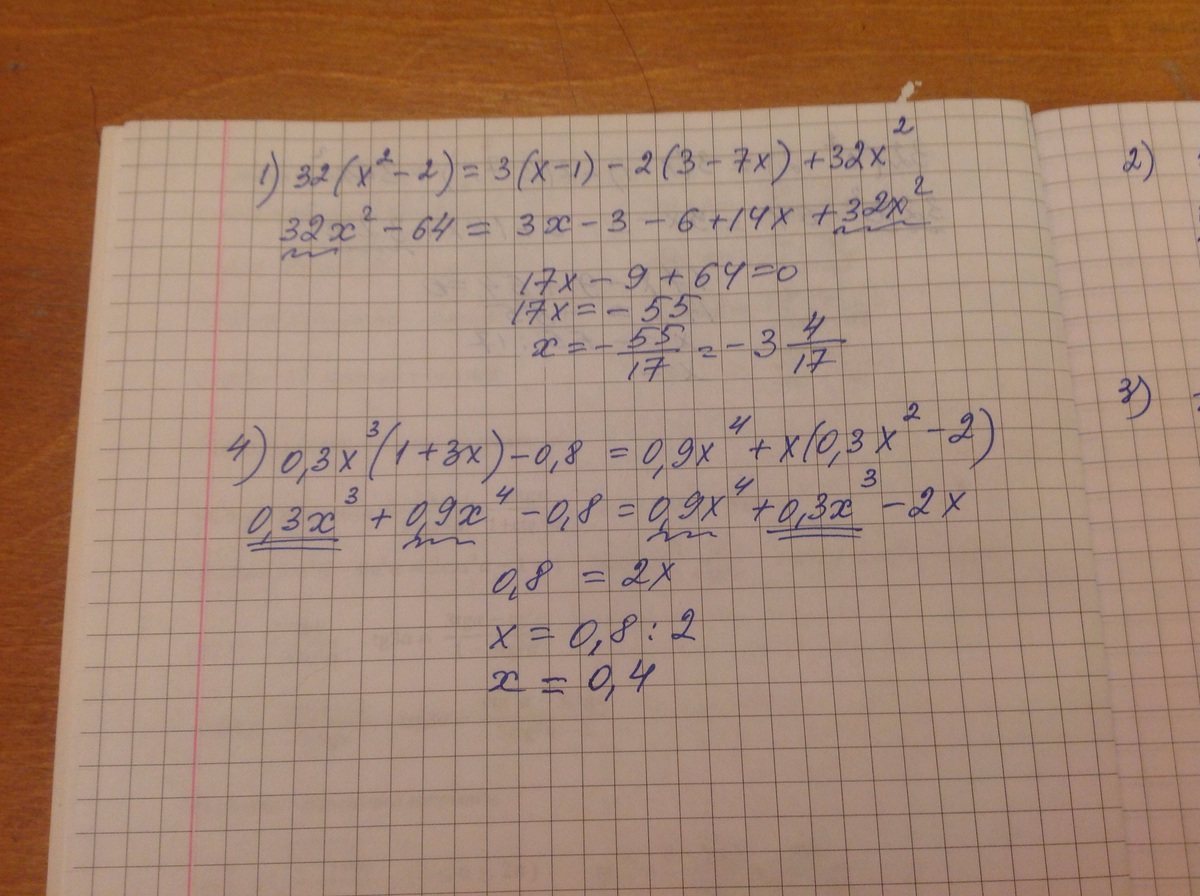 1) 32(x² - 2) = 3(x - 1) - 2(3 - 7x) + 32x²
32x² - 64 = 3x - 3 - 6 + 14x + 32x²
17x - 9 + 64 = 0
17x = - 55
x = - 55/17 = - 3 4/17
4) 0,3x³(1 + 3x) - 0,8 = 0,9x⁴ + x(0,3x² - 2)
0,3x³ + 0,9x⁴ - 0,8 = 0,9x⁴ + 0,3x³ - 2x
0,8 = 2x
x = 0,8 : 2
x = 0,4
2)
3)